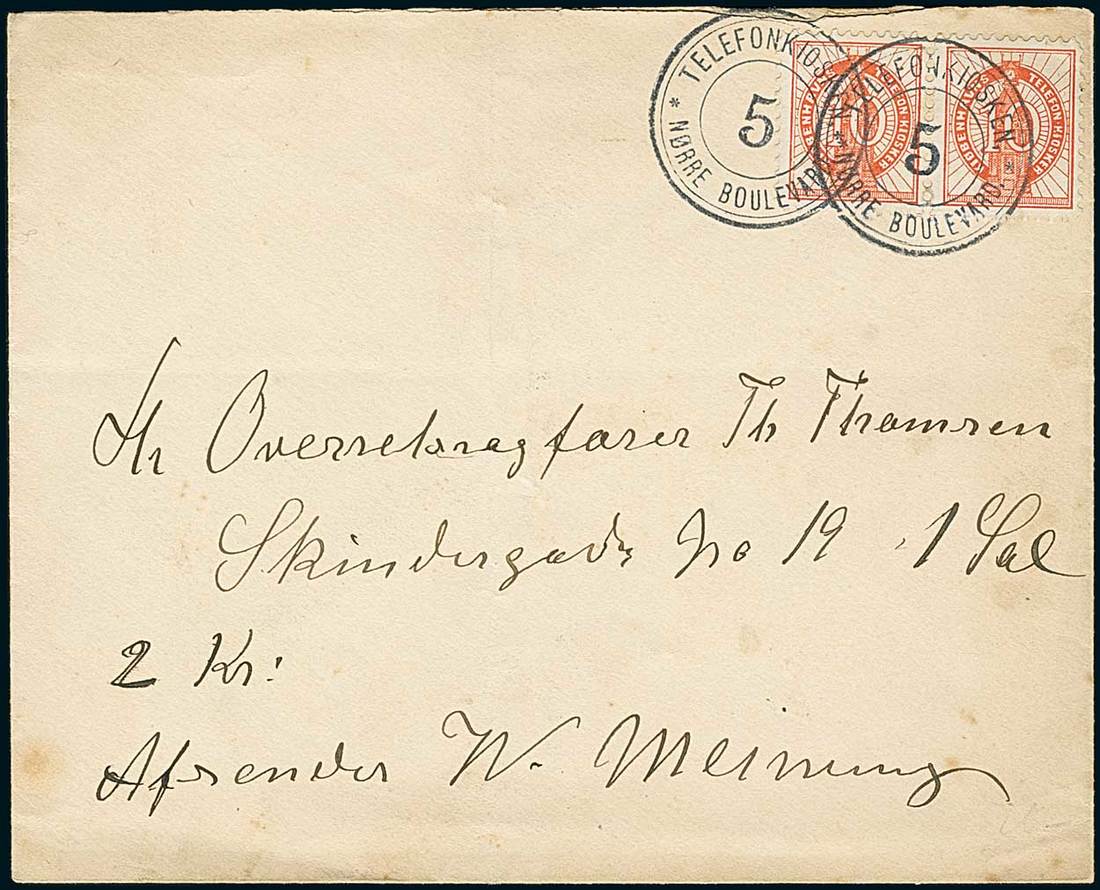 * TELEFONKIOSKEN *
5
NØRRE BOULEVARD.
* TELEFONKIOSKEN *
5
NØRRE BOULEVARD.
KJØBENHAVNS TELEFON-KIOSKER
10
KJØBENHAVNS TELEFON-KIOSKER
10
Hr Overretssagfører Th Thomsen
Skindergade No 19 1 Sal
2 Kr:
Afsender W. Meinung